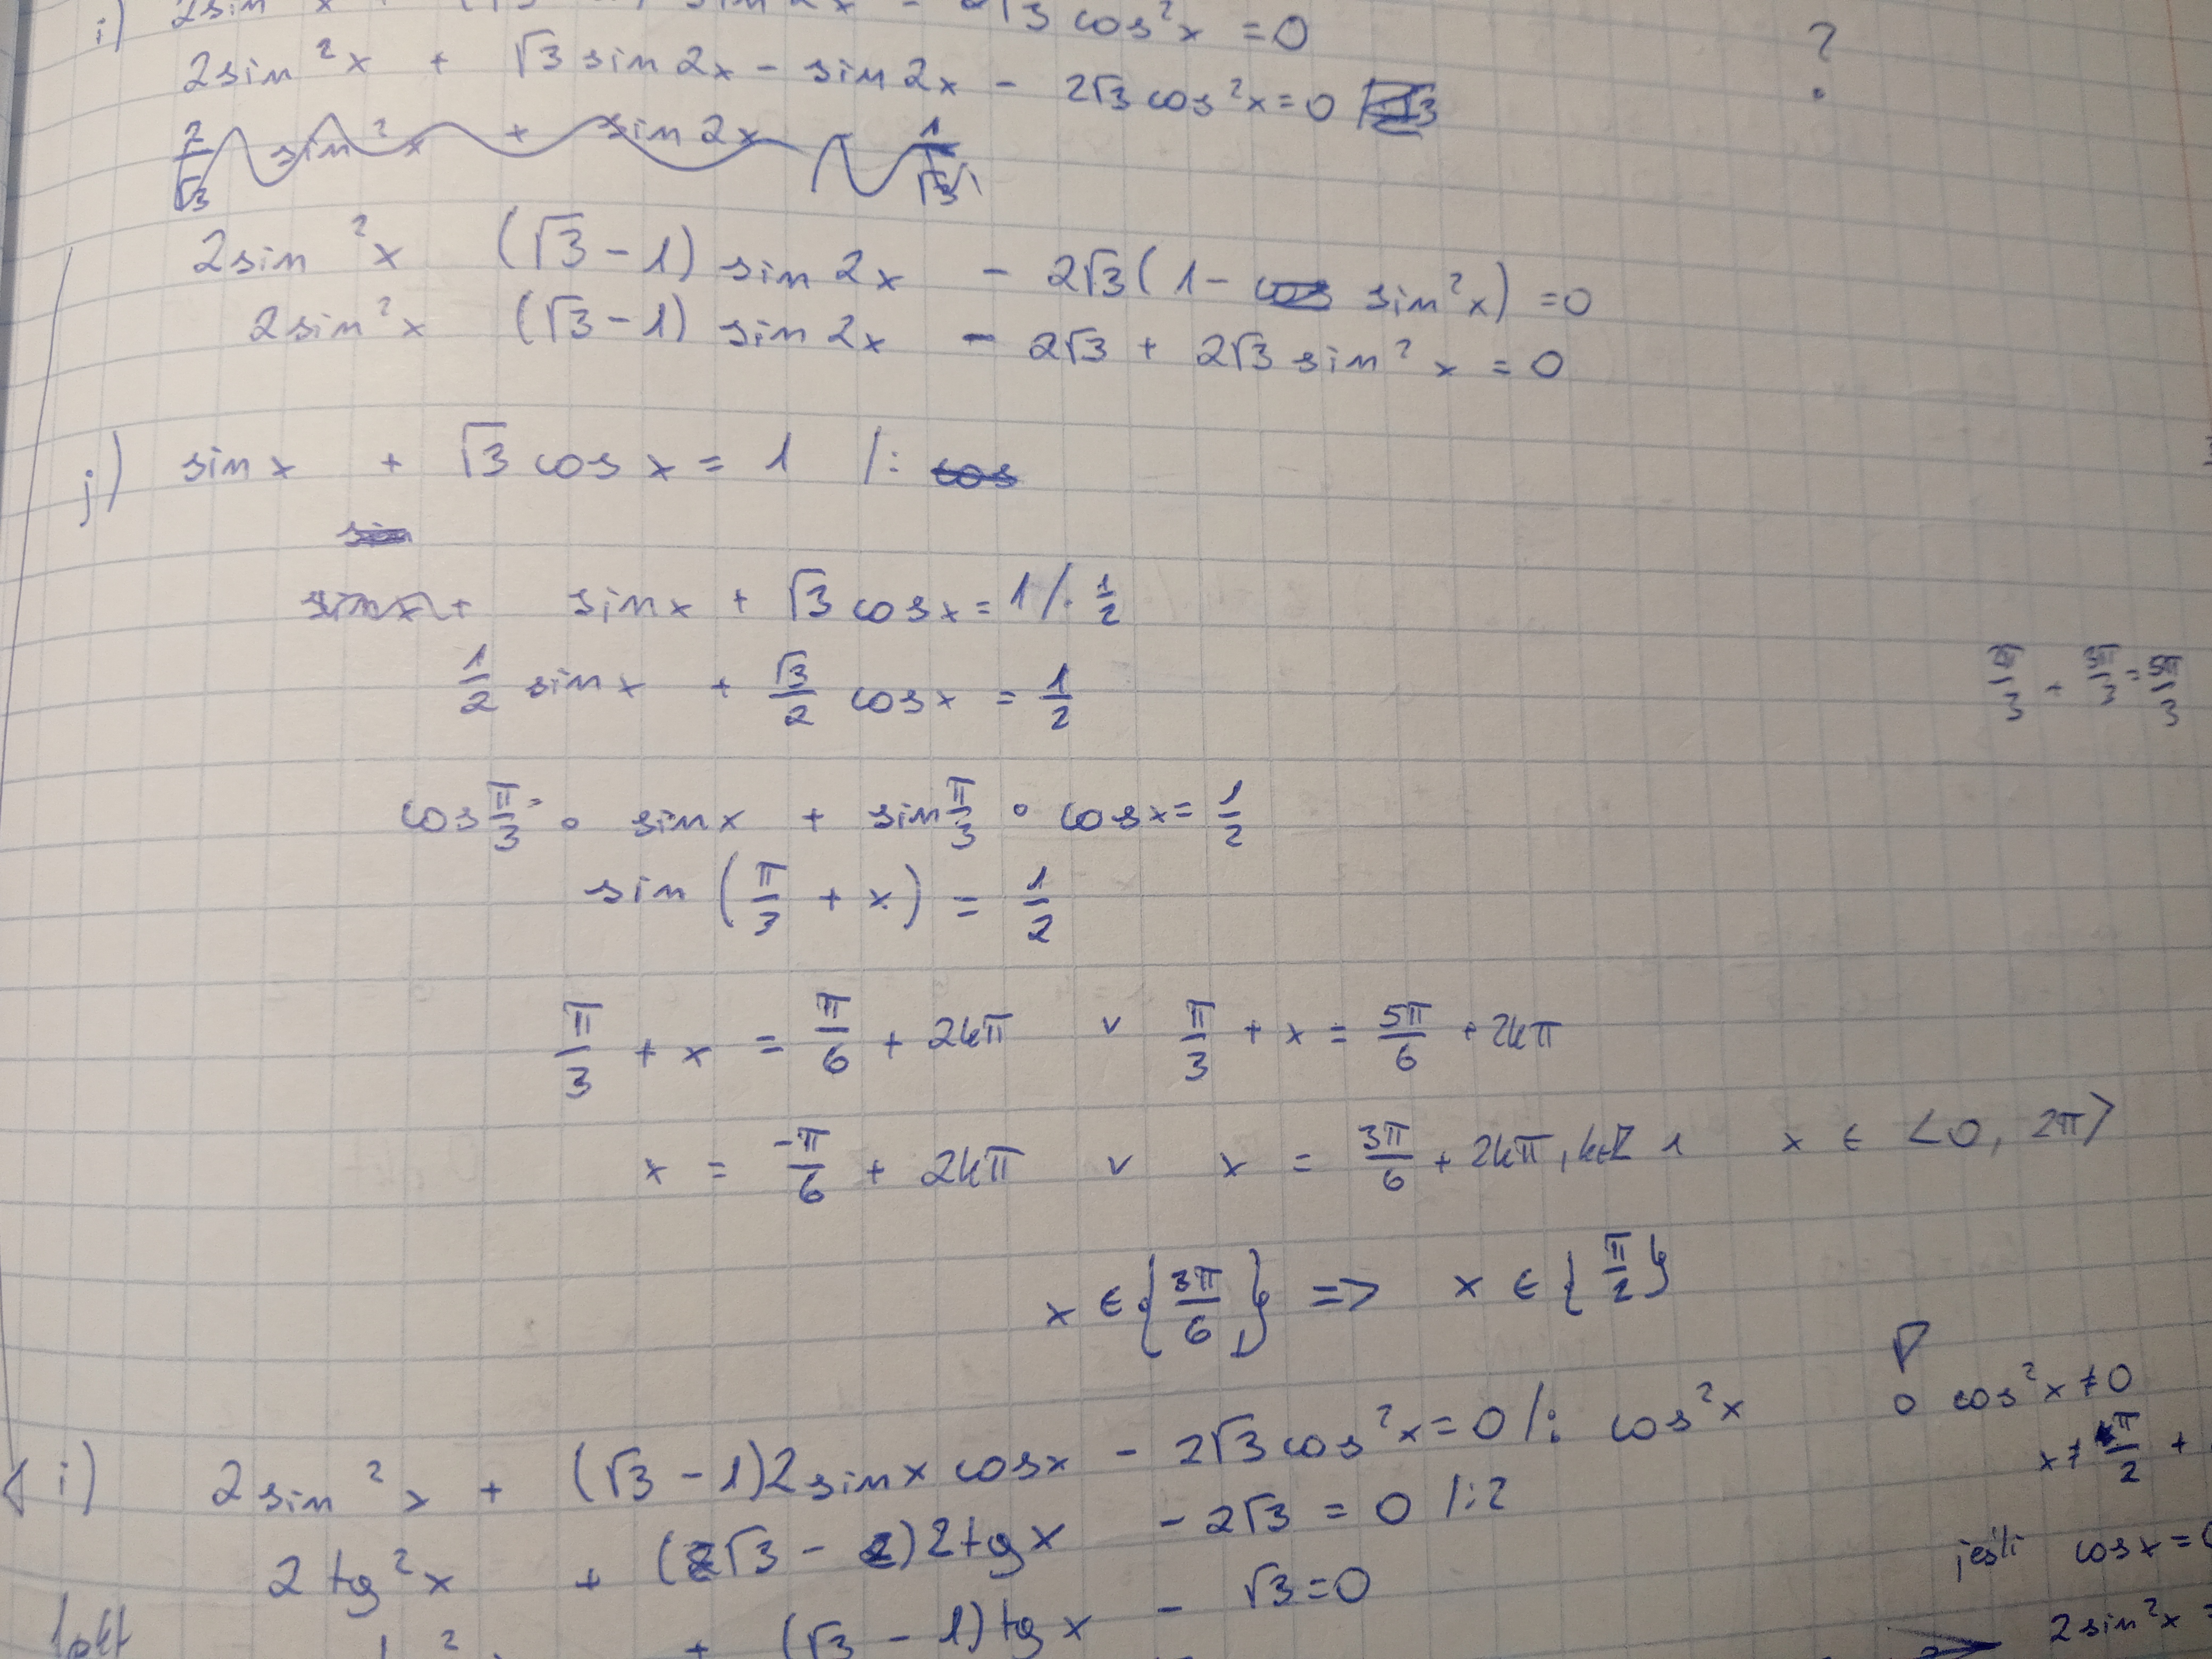 i) 2sin x sin 2x - 2√3 cos²x = 0
2sin²x + √3 sin2x - sin2x - 2√3 cos²x = 0
?
2/√3 sin²x + sin2x 1/√3
2sin²x (√3 - 1) sin2x - 2√3(1 - cos sin²x) = 0
2sin²x (√3 - 1) sin2x - 2√3 + 2√3 sin²x = 0
j) sinx + √3 cosx = 1 /: cos
sin
sinx + sinx + √3 cosx = 1 /· 1/2
1/2 sinx + √3/2 cosx = 1/2
2π/3 + 3π/3 = 5π/3
cos π/3 · sinx + sin π/3 · cosx = 1/2
sin (π/3 + x) = 1/2
π/3 + x = π/6 + 2kπ v π/3 + x = 5π/6 + 2kπ
x = -π/6 + 2kπ v x = 3π/6 + 2kπ, k∈Z ∧ x ∈ <0, 2π>
x ∈ {3π/6} => x ∈ {π/2}
i) 2sin²x + (√3 - 1)2sinx cosx - 2√3 cos²x = 0 /: cos²x
cos²x ≠ 0
x ≠ π/2 +
2tg²x + (2√3 - 2)2tgx - 2√3 = 0 /:2
jeśli cosx =
+ (√3 - 1)tgx - √3 = 0
2sin²x =
1pkt